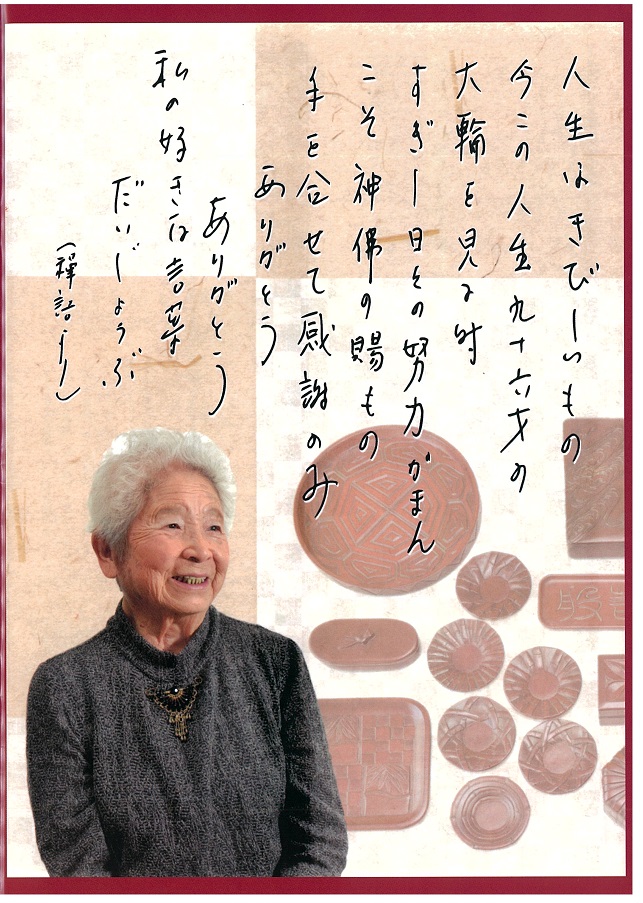 人生はきびしいもの
今この人生九十六才の
大輪を見る時
すぎし日々の努力がまん
こそ神佛の賜もの
手を合せて感謝のみ
ありがとう
ありがとう
私の好きな言葉
だいじょうぶ
（禪語より）